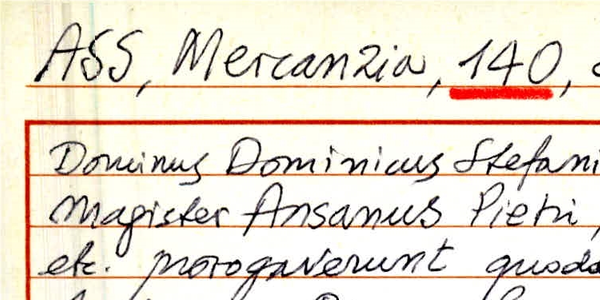 ASS, Mercanzia, 140,
Dominus Dominicus Stefani
Magister Ansanus Pietri,
etc. prorogaverunt quoda